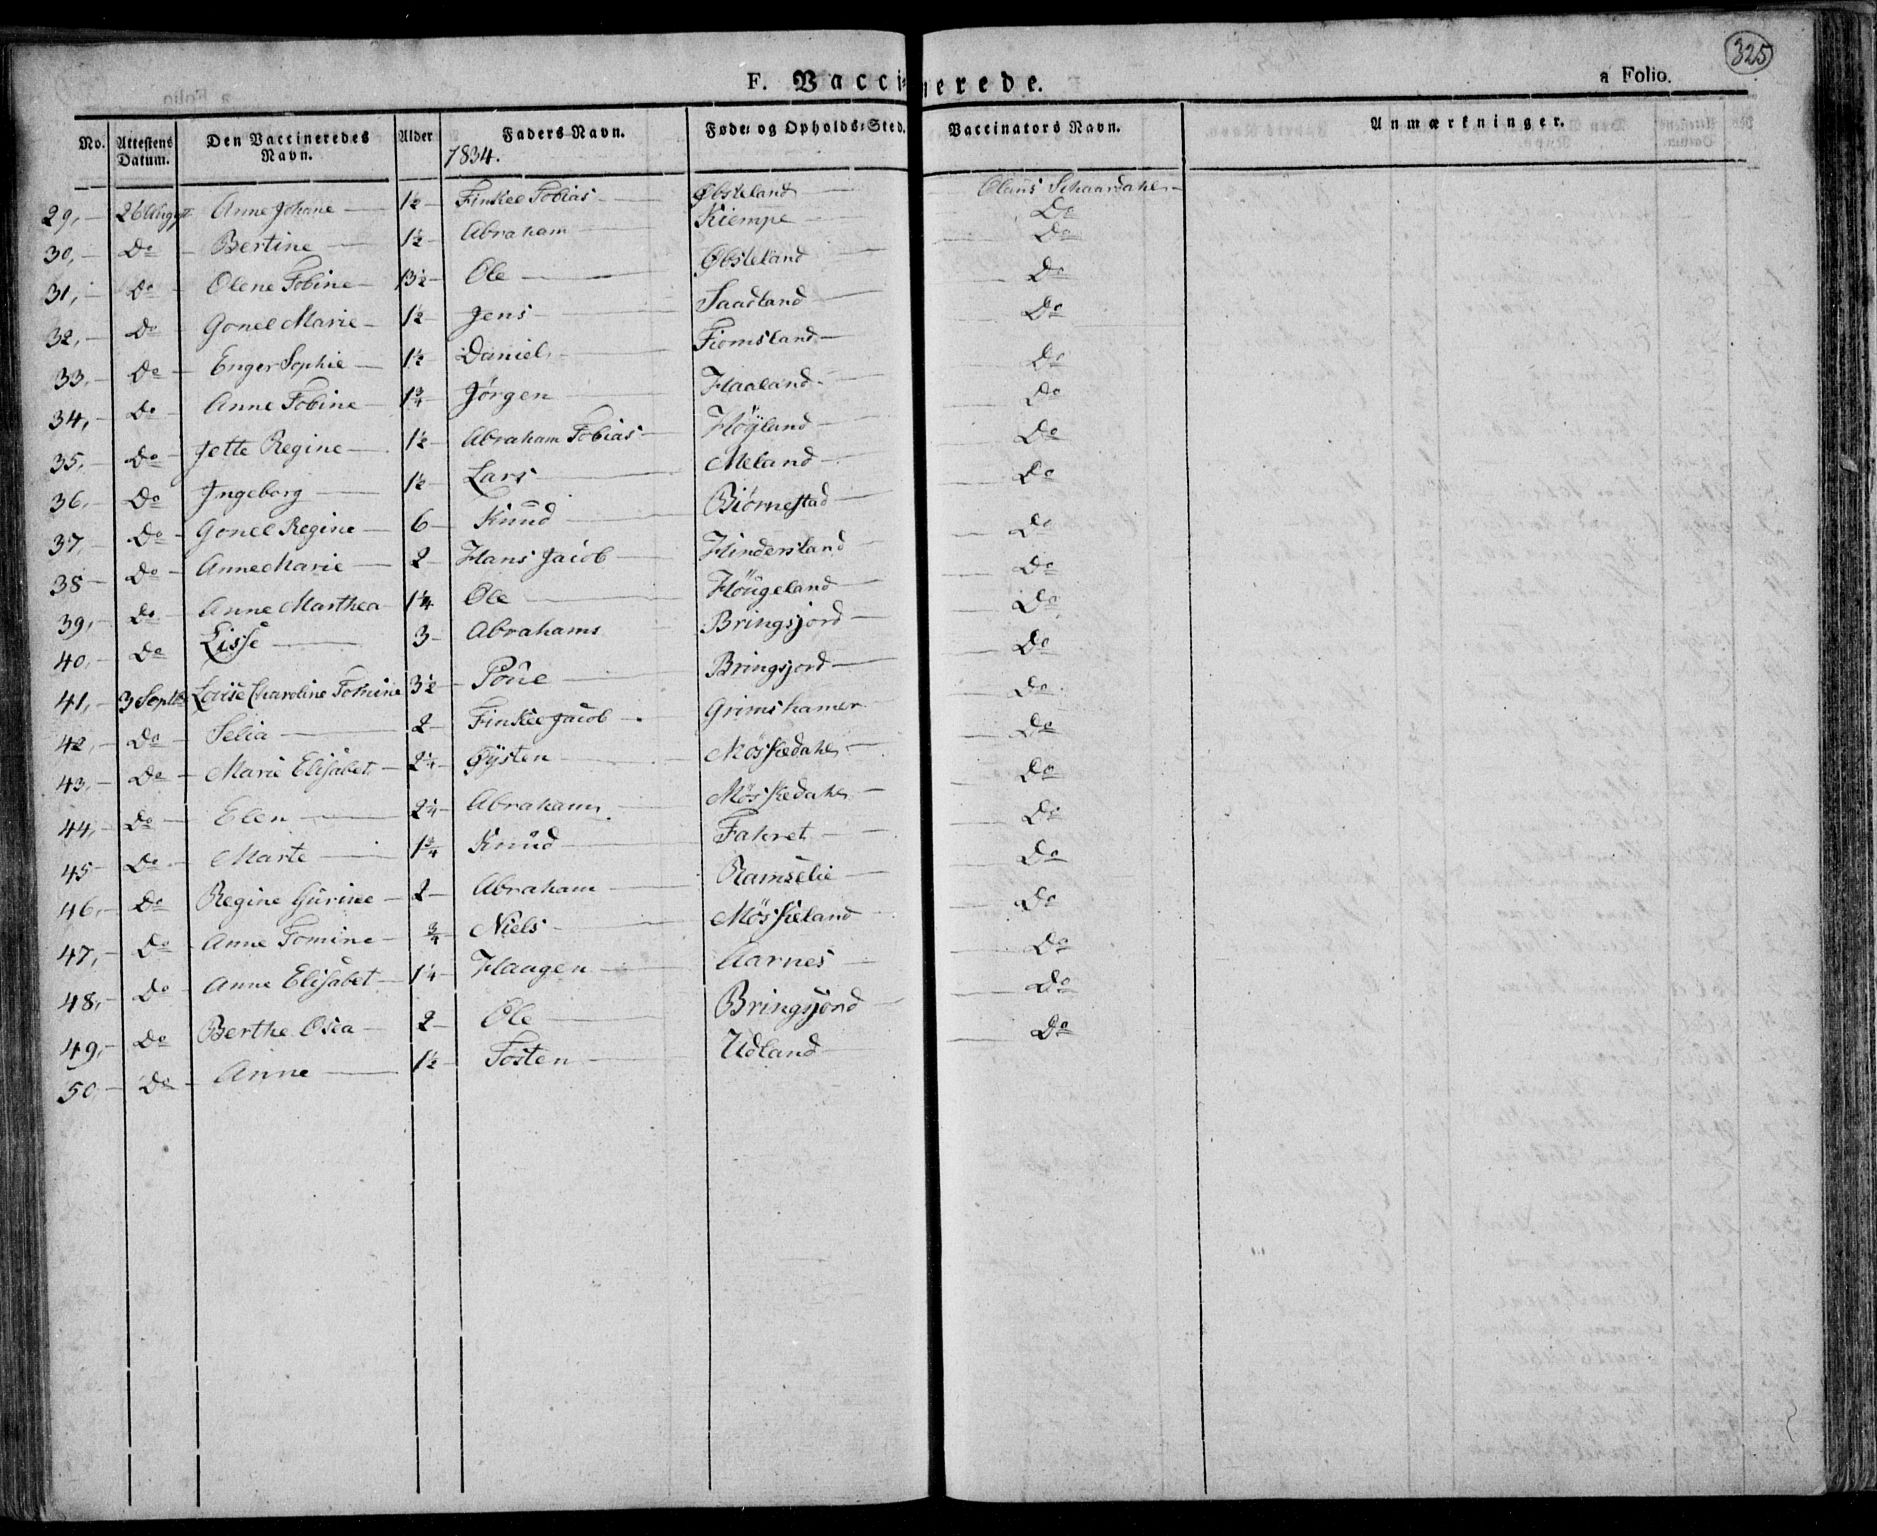 325
F. Vaccinerede.
a Folio.
No. Attestens Datum. Den Vaccineredes Navn. Alder Faders Navn. Føde- og Opholds-Sted. Vaccinators Navn. Anmærkninger.
1834.
29, 26 Augst Anne Johane 1½ Finkel Tobias Øbsteland Claus Schaardahl
30, Do Bertine 1½ Abraham Kiempe Do
31, Do Olene Tobine 13½ Ole Øbsteland Do
32, Do Gonel Marie 1½ Jens Saadland Do
33, Do Enger Sophie 1½ Daniel Fiomsland Do
34, Do Anne Tobine 1¾ Jørgen Haaland Do
35, Do Jette Regine 1½ Abraham Tobias Höyland Do
36, Do Ingeborg 1½ Lars Meland Do
37 Do Gonel Regine 6 Knud Biörnestad Do
38 Do Anne Marie 2 Hans Jacob Hindersland Do
39, Do Anne Marthea 1¼ Ole Höugeland Do
40, Do Lisse 3 Abraham Bringsjord Do
41, 3 Septbr Lovise Charoline Tomine 3½ Poûe Bringsjord Do
42, Do Selia 2 Finkel Jacob Grimshamer Do
43, Do Marie Elisabet 2¼ Øysten Møskedahl Do
44, Do Elen 2¼ Abraham Møskedahl Do
45 Do Marte 1¾ Knud Fahret Do
46, Do Regine Gurine 2 Abraham Ramselie Do
47, Do Anne Tomine ¾ Niels Møskeland Do
48, Do Anne Elisabet 1¼ Haagen Aarnes Do
49, Do Berthe Osea 2 Ole Bringsjord Do
50 Do Anne 1½ Tosten Udland Do